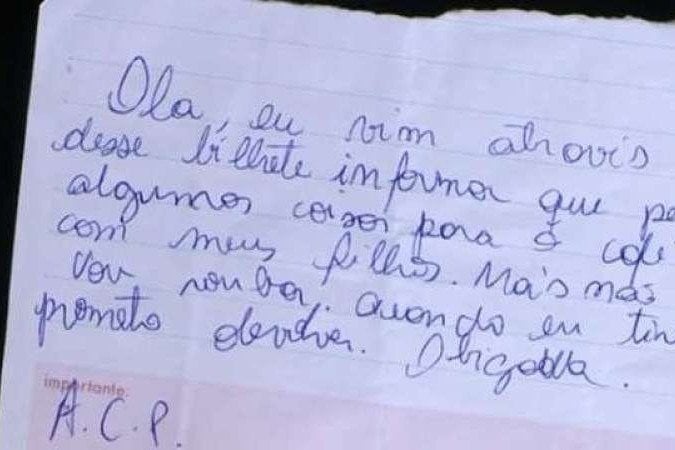 Ola, eu vim atravis
desse bilhete informar que pe
algumas coisas para o cafe
com meus filhos. Mais não
vou roubar. Quando eu tin
prometo devolver. Obrigada.
importante:
A.C.P.